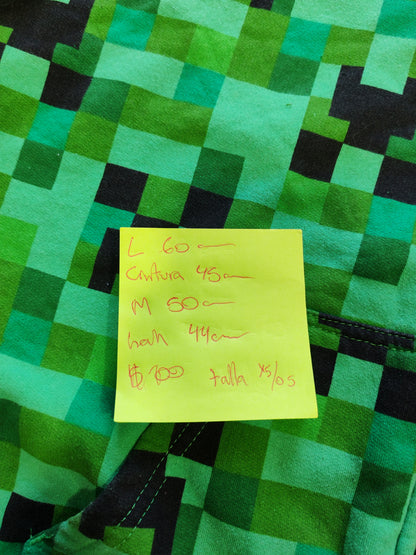 L 60 cm
Cintura 45 cm
M 50 cm
44 cm
talla xs/os